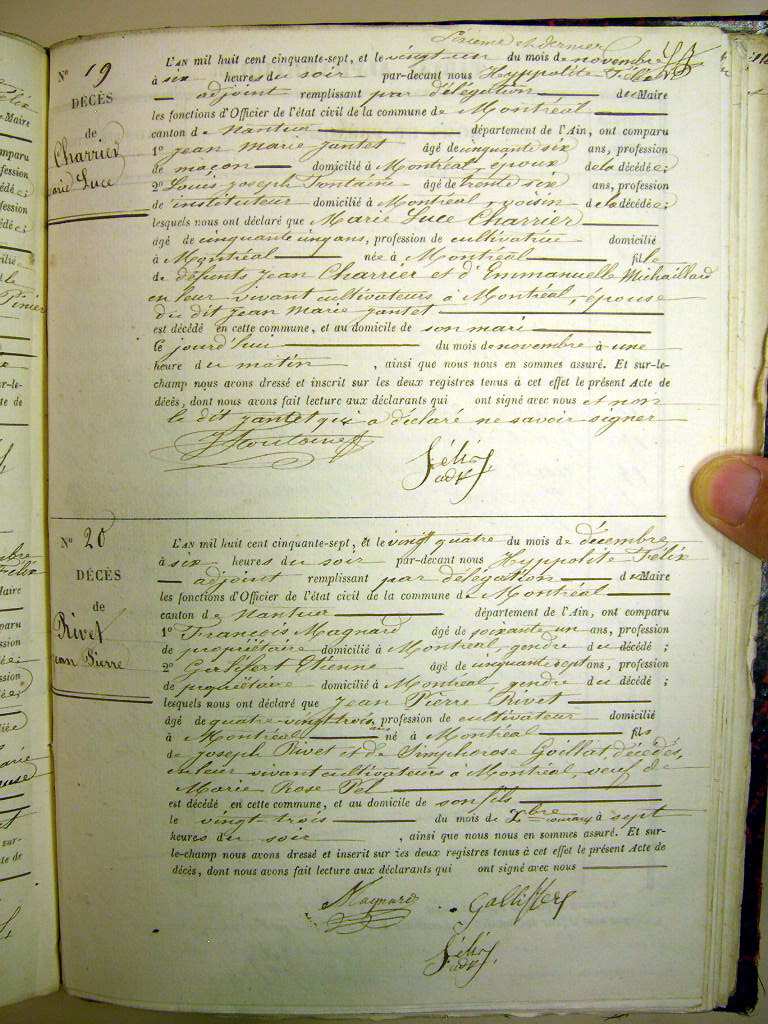 Sixième et dernier
N° 19
DÉCÈS
de
Charrier
Marie Luce
L'AN mil huit cent cinquante-sept, et le vingt un du mois de novembre
à six heures du soir par-devant nous Hyppolite Félix
adjoint remplissant par délégation de Maire
les fonctions d'Officier de l'état civil de la commune de Montréal
canton de Nantua département de l'Ain, ont comparu
1° Jean Marie Jantet âgé de cinquante six ans, profession
de maçon domicilié à Montréal, époux de la décédée;
2° Louis Joseph Fontaine âgé de trente six ans, profession
de instituteur domicilié à Montréal, voisin de la décédée;
lesquels nous ont déclaré que Marie Luce Charrier
âgé de cinquante cinq ans, profession de cultivatrice domicilié
à Montréal née à Montréal fille
de défunts Jean Charrier et d'Emmanuelle Michaillard
en leur vivant cultivateurs à Montréal, épouse
du dit Jean Marie Jantet
est décédé en cette commune, et au domicile de son mari
le jourd'hui du mois de novembre à une
heure du matin, ainsi que nous nous en sommes assuré. Et sur-le-
champ nous avons dressé et inscrit sur les deux registres tenus à cet effet le présent Acte de
décès, dont nous avons fait lecture aux déclarants qui ont signé avec nous et non
le dit Jantet qui a déclaré ne savoir signer
Fontaine
Félix
adj
N° 20
DÉCÈS
de
Rivet
Jean Pierre
L'AN mil huit cent cinquante-sept, et le vingt quatre du mois de décembre
à six heures du soir par-devant nous Hyppolite Félix
adjoint remplissant par délégation du Maire
les fonctions d'Officier de l'état civil de la commune de Montréal
canton de Nantua département de l'Ain, ont comparu
1° François Magnard âgé de soixante un ans, profession
de propriétaire domicilié à Montréal, gendre du décédé;
2° Etienne âgé de cinquante sept ans, profession
de propriétaire domicilié à Montréal, gendre du décédé;
lesquels nous ont déclaré que Jean Pierre Rivet
âgé de quatre vingt trois ans profession de cultivateur domicilié
à Montréal né à Montréal fils
de Joseph Rivet et de Simphorose Goillat, décédés,
en leur vivant cultivateurs à Montréal, veuf de
Marie Rose Pel
est décédé en cette commune, et au domicile de son fils
le vingt trois du mois de Xbre courant à sept
heures du soir, ainsi que nous nous en sommes assuré. Et sur-
le-champ nous avons dressé et inscrit sur les deux registres tenus à cet effet le présent Acte de
décès, dont nous avons fait lecture aux déclarants qui ont signé avec nous
Magnard
Félix
adj